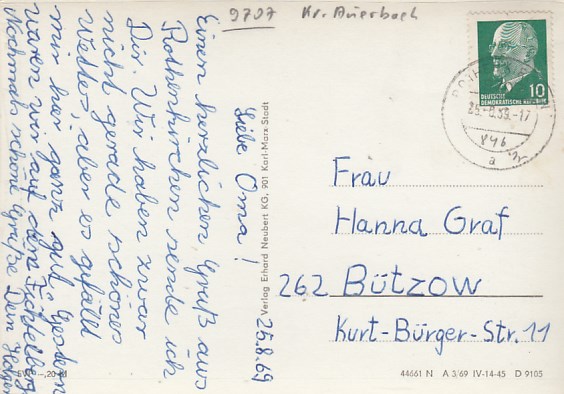 9707 Kr. Auerbach
25.8.69
Liebe Oma!
Einen herzlichen Gruß aus
Rothenkirchen sende ich
Dir. Wir haben zwar
nicht gerade schönes
Wetter, aber es gefällt
mir hier ganz gut. Gestern
waren wir auf dem Fichtelberg
Nochmals schöne Grüße Dein Holger
Verlag Erhard Neubert KG, 901 Karl-Marx-Stadt
DEUTSCHE
DEMOKRATISCHE REPUBLIK
10
-17
a
Frau
Hanna Graf
262 Bützow
Kurt-Bürger-Str. 11
44661 N A 3/69 IV-14-45 D 9105